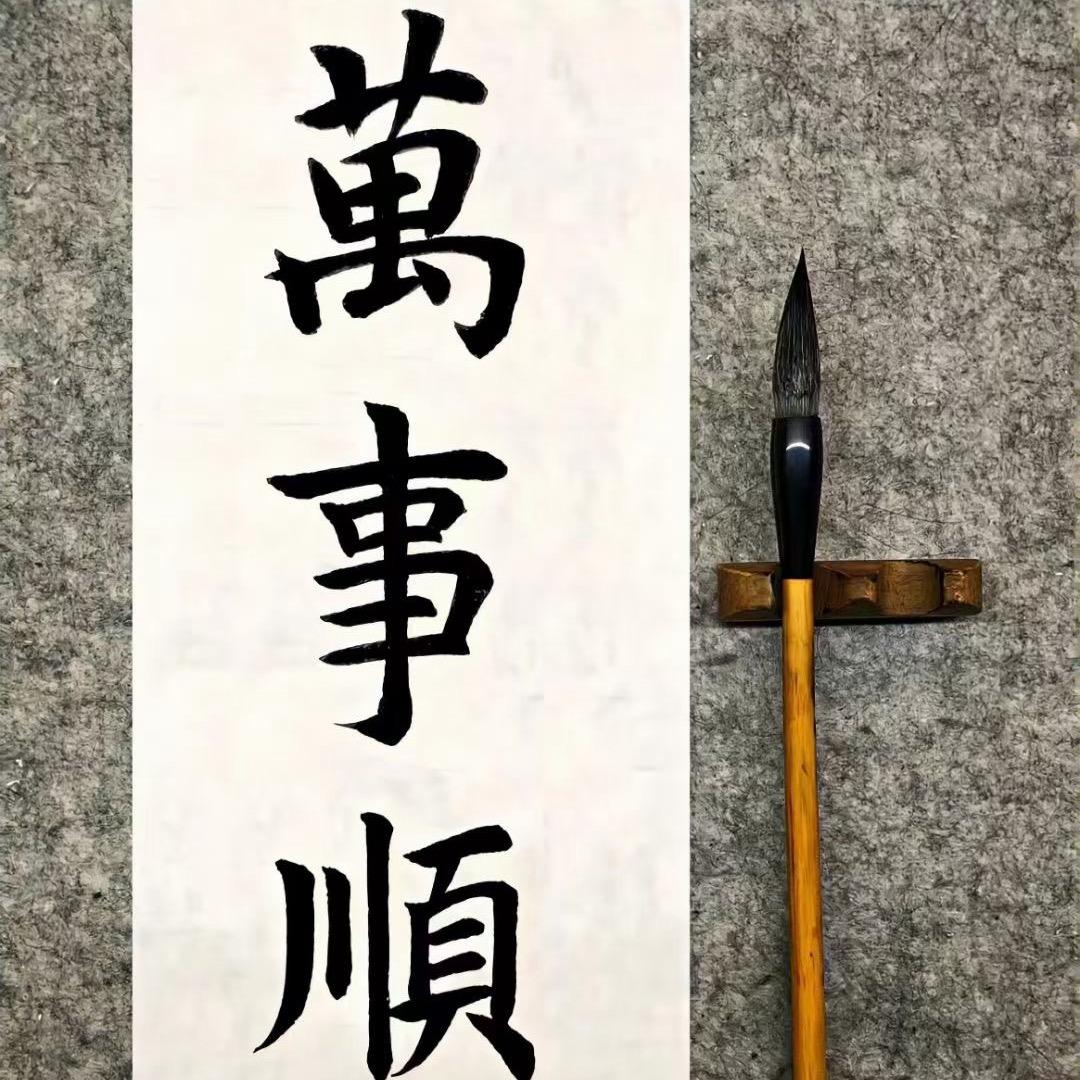 萬事順